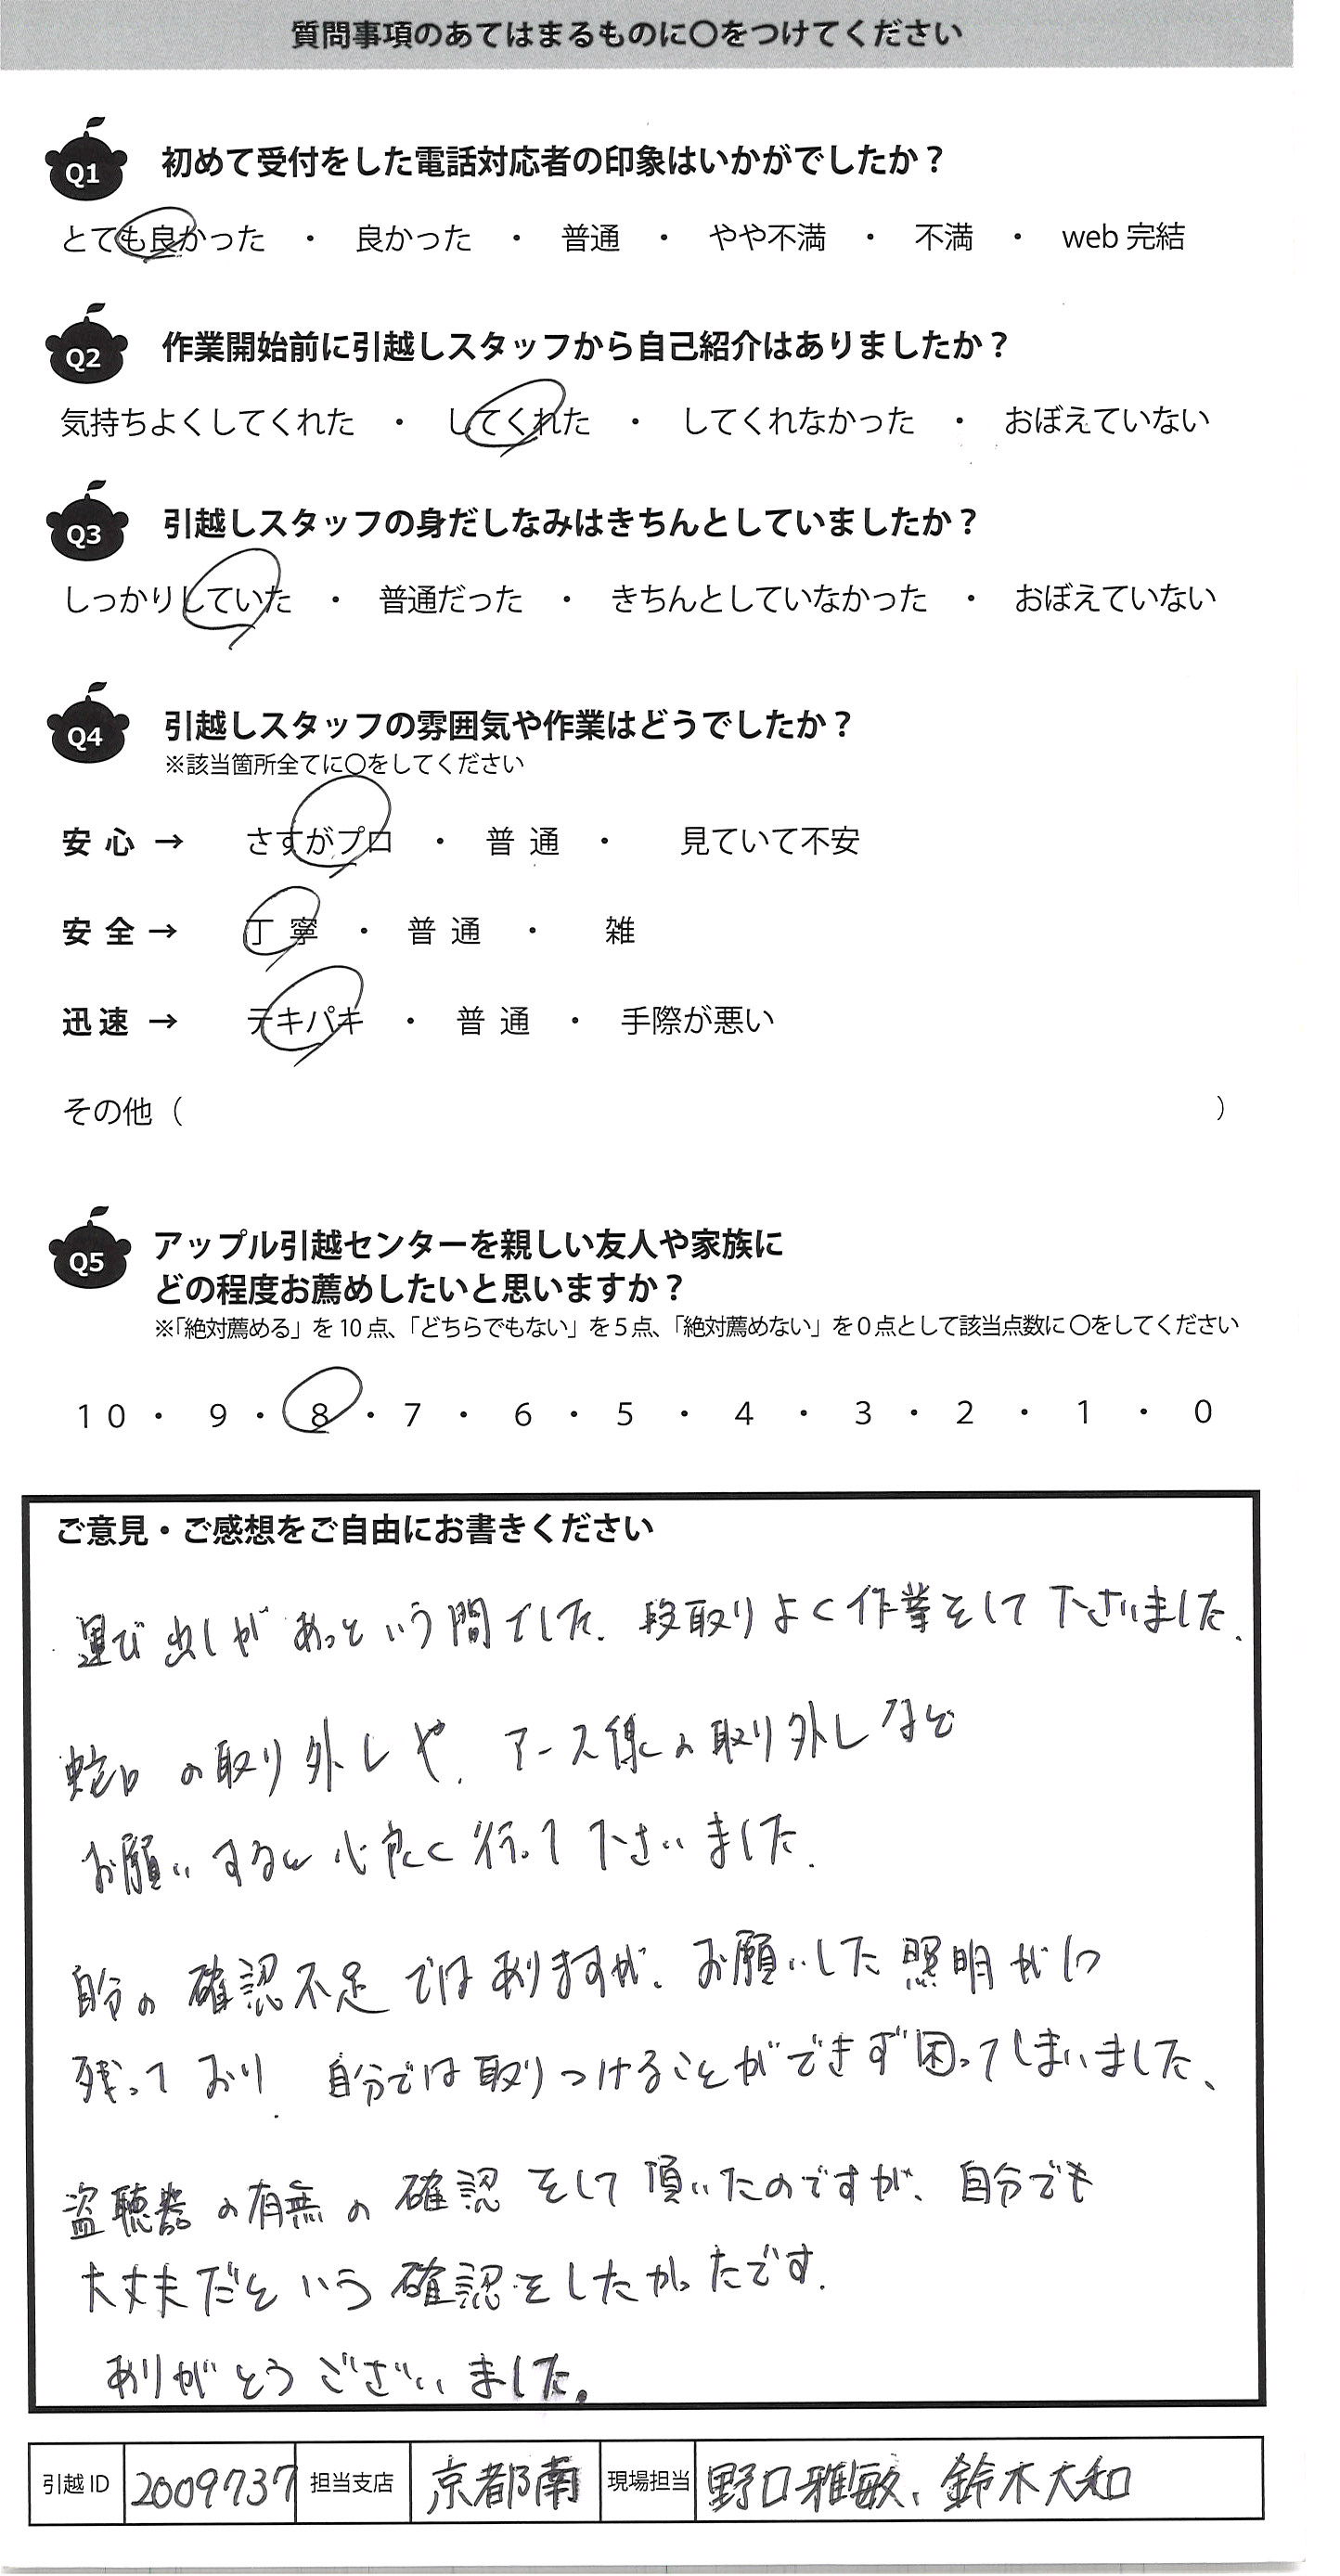 質問事項のあてはまるものに〇をつけてください
Q1 初めて受付をした電話対応者の印象はいかがでしたか？
とても良かった ・ 良かった ・ 普通 ・ やや不満 ・ 不満 ・ web 完結
Q2 作業開始前に引越しスタッフから自己紹介はありましたか？
気持ちよくしてくれた ・ してくれた ・ してくれなかった ・ おぼえていない
Q3 引越しスタッフの身だしなみはきちんとしていましたか？
しっかりしていた ・ 普通だった ・ きちんとしていなかった ・ おぼえていない
Q4 引越しスタッフの雰囲気や作業はどうでしたか？
※該当箇所全てに〇をしてください
安 心 → さすがプロ ・ 普 通 ・ 見ていて不安
安 全 → 丁 寧 ・ 普 通 ・ 雑
迅 速 → テキパキ ・ 普 通 ・ 手際が悪い
その他（ ）
Q5 アップル引越センターを親しい友人や家族に
どの程度お薦めしたいと思いますか？
※「絶対薦める」を 10 点、「どちらでもない」を 5 点、「絶対薦めない」を 0 点として該当点数に 〇をしてください
10 ・ 9 ・ 8 ・ 7 ・ 6 ・ 5 ・ 4 ・ 3 ・ 2 ・ 1 ・ 0
ご意見・ご感想をご自由にお書きください
運び出しがあっという間でした。段取りよく作業をして下さいました。
蛇口の取り外しや、アース線の取り外しなど
お願いすると心良く行って下さいました。
自分の確認不足ではありますが、お願いした照明が1つ
残っており、自分では取りつけることができず困ってしまいました、
盗聴器の有無の確認をして頂いたのですが、自分でも
大丈夫だという確認をしたかったです。
ありがとうございました。
引越 ID 2009737 担当支店 京都南 現場担当 野口雅敏、鈴木大和